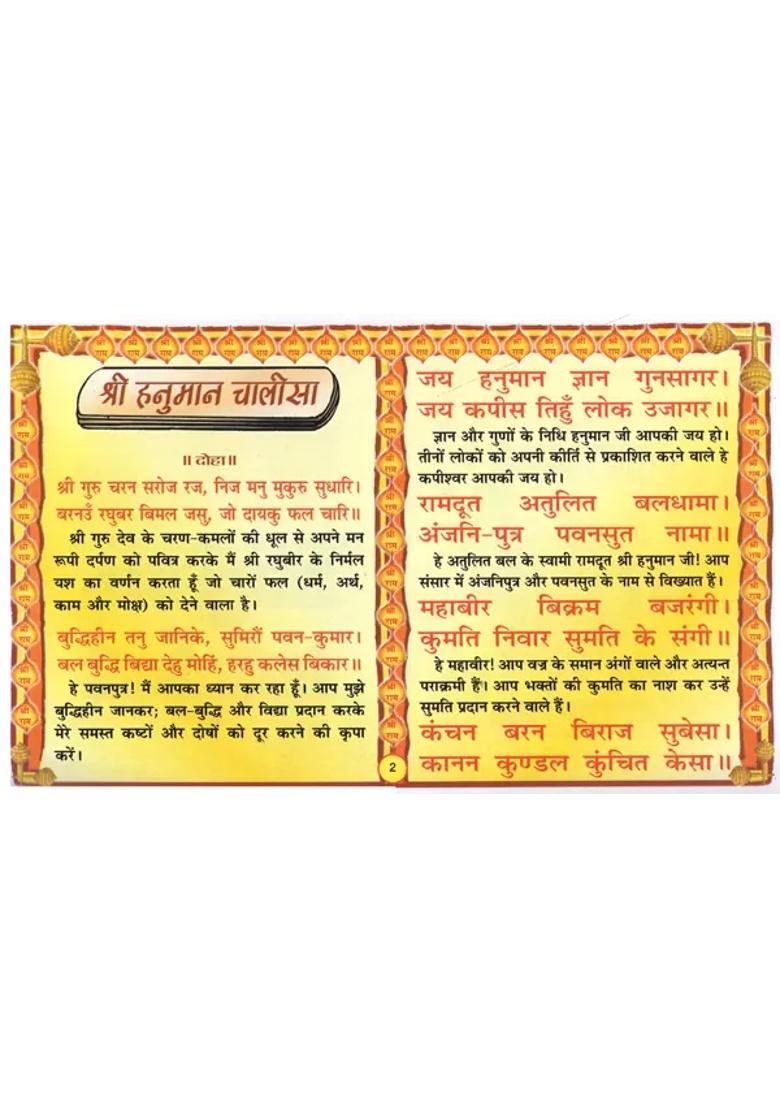 श्री हनुमान चालीसा
॥ दोहा॥
श्री गुरु चरन सरोज रज, निज मनु मुकुरु सुधारि।
बरनउँ रघुबर बिमल जसु, जो दायकु फल चारि॥
श्री गुरु देव के चरण-कमलों की धूल से अपने मन
रूपी दर्पण को पवित्र करके मैं श्री रघुबीर के निर्मल
यश का वर्णन करता हूँ जो चारों फल (धर्म, अर्थ,
काम और मोक्ष) को देने वाला है।
बुद्धिहीन तनु जानिके, सुमिरौं पवन-कुमार।
बल बुद्धि बिद्या देहु मोहिं, हरहु कलेस बिकार॥
हे पवनपुत्र! मैं आपका ध्यान कर रहा हूँ। आप मुझे
बुद्धिहीन जानकर; बल-बुद्धि और विद्या प्रदान करके
मेरे समस्त कष्टों और दोषों को दूर करने की कृपा
करें।
2
जय हनुमान ज्ञान गुनसागर।
जय कपीस तिहुँ लोक उजागर॥
ज्ञान और गुणों के निधि हनुमान जी आपकी जय हो।
तीनों लोकों को अपनी कीर्ति से प्रकाशित करने वाले हे
कपीश्वर आपकी जय हो।
रामदूत अतुलित बलधामा।
अंजनि-पुत्र पवनसुत नामा॥
हे अतुलित बल के स्वामी रामदूत श्री हनुमान जी! आप
संसार में अंजनिपुत्र और पवनसुत के नाम से विख्यात हैं।
महाबीर बिक्रम बजरंगी।
कुमति निवार सुमति के संगी॥
हे महावीर! आप वज्र के समान अंगों वाले और अत्यन्त
पराक्रमी हैं। आप भक्तों की कुमति का नाश कर उन्हें
सुमति प्रदान करने वाले हैं।
कंचन बरन बिराज सुबेसा।
कानन कुण्डल कुंचित केसा॥